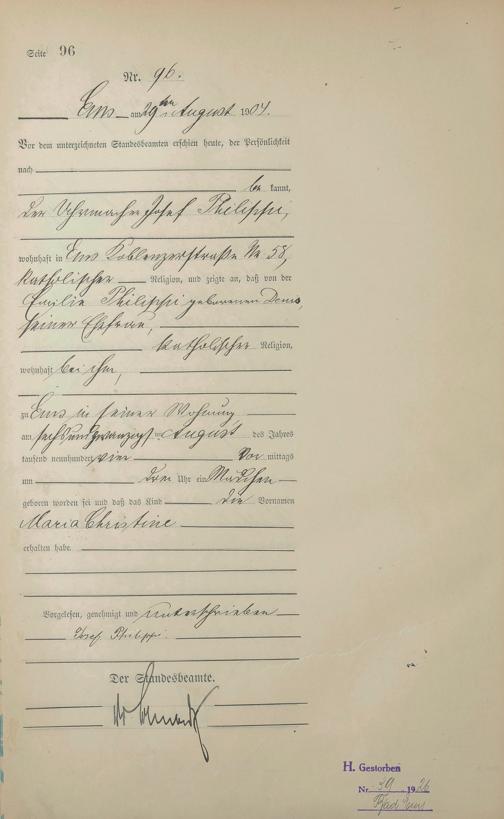 Seite 96
Nr. 96.
Ems am 29ten August 1904.
Vor dem unterzeichneten Standesbeamten erschien heute, der Persönlichkeit
nach
be kannt,
der Uhrmacher Josef Philippi,
wohnhaft in Ems Koblenzerstraße Nr. 58,
katholischer Religion, und zeigte an, daß von der
Emilie Philippi geborenen
seiner Ehefrau,
katholischer Religion,
wohnhaft bei ihm,
zu Ems in seiner Wohnung
am sechsundzwanzigsten August des Jahres
tausend neunhundert vier Vor mittags
um drei Uhr ein Mädchen
geboren worden sei und daß das Kind die Vornamen
Maria Christine
erhalten habe.
Vorgelesen, genehmigt und unterschrieben
Josef Philippi.
Der Standesbeamte.
H. Gestorben
Nr. 39 1926
Bad Ems